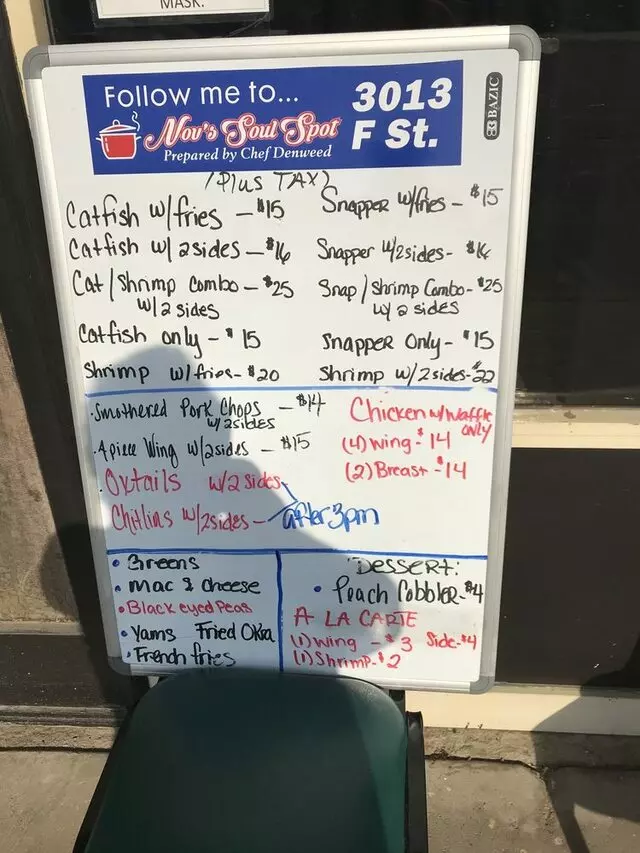 MASK.
Follow me to...
Nov's Soul Spot
Prepared by Chef Denweed
3013
F St.
BAZIC
(Plus TAX)
Catfish w/fries - $15
Catfish w/ 2sides - $16
Cat/Shrimp Combo - $25
w/2 sides
Catfish only - $15
Shrimp w/fries - $20
Snapper w/fries - $15
Snapper w/2sides - $16
Snap/Shrimp Combo - $25
w/ 2 sides
Snapper Only - $15
Shrimp w/2sides - $22
·Smothered Pork Chops - $14
w/2sides
·4piece Wing w/2sides - $15
·Oxtails w/2 sides
Chitlins w/2sides - after 3pm
Chicken w/Waffle
ONLY
(4) Wing - $14
(2) Breast - $14
• Greens
• Mac & Cheese
• Black eyed Peas
• Yams Fried Okra
• French fries
DESSERT:
• Peach Cobbler - $4
A LA CARTE
(1) Wing - $3 Side - $4
(1) Shrimp - $2